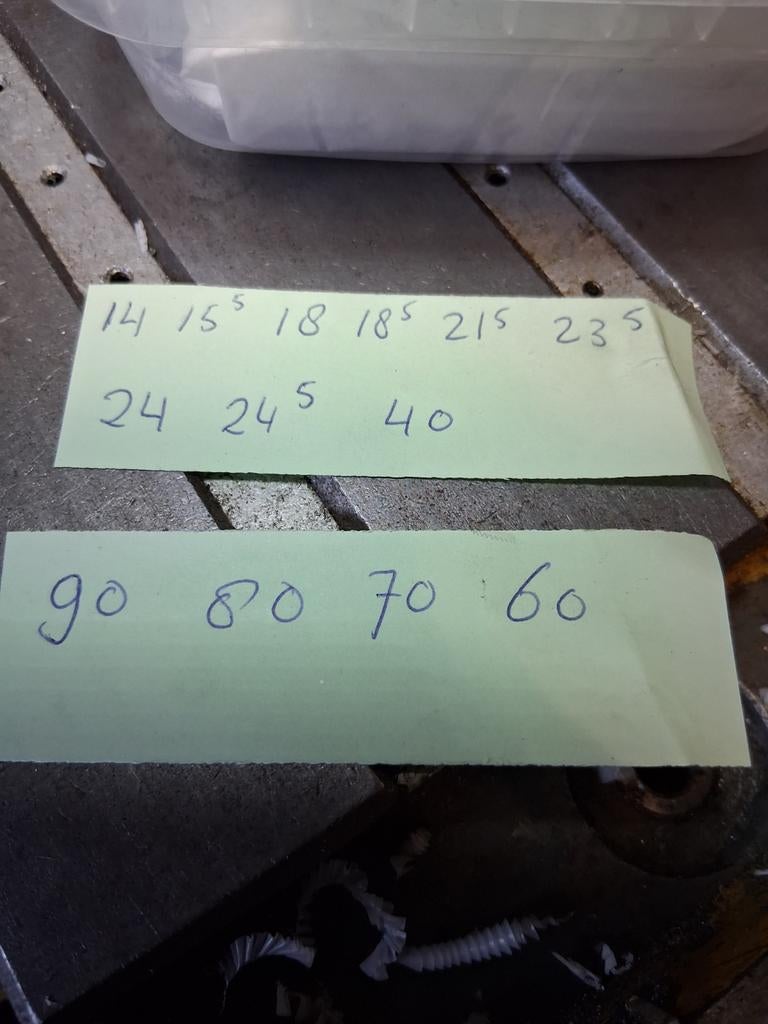 14 15⁵ 18 18⁵ 21⁵ 23⁵
24 24⁵ 40
90 80 70 60